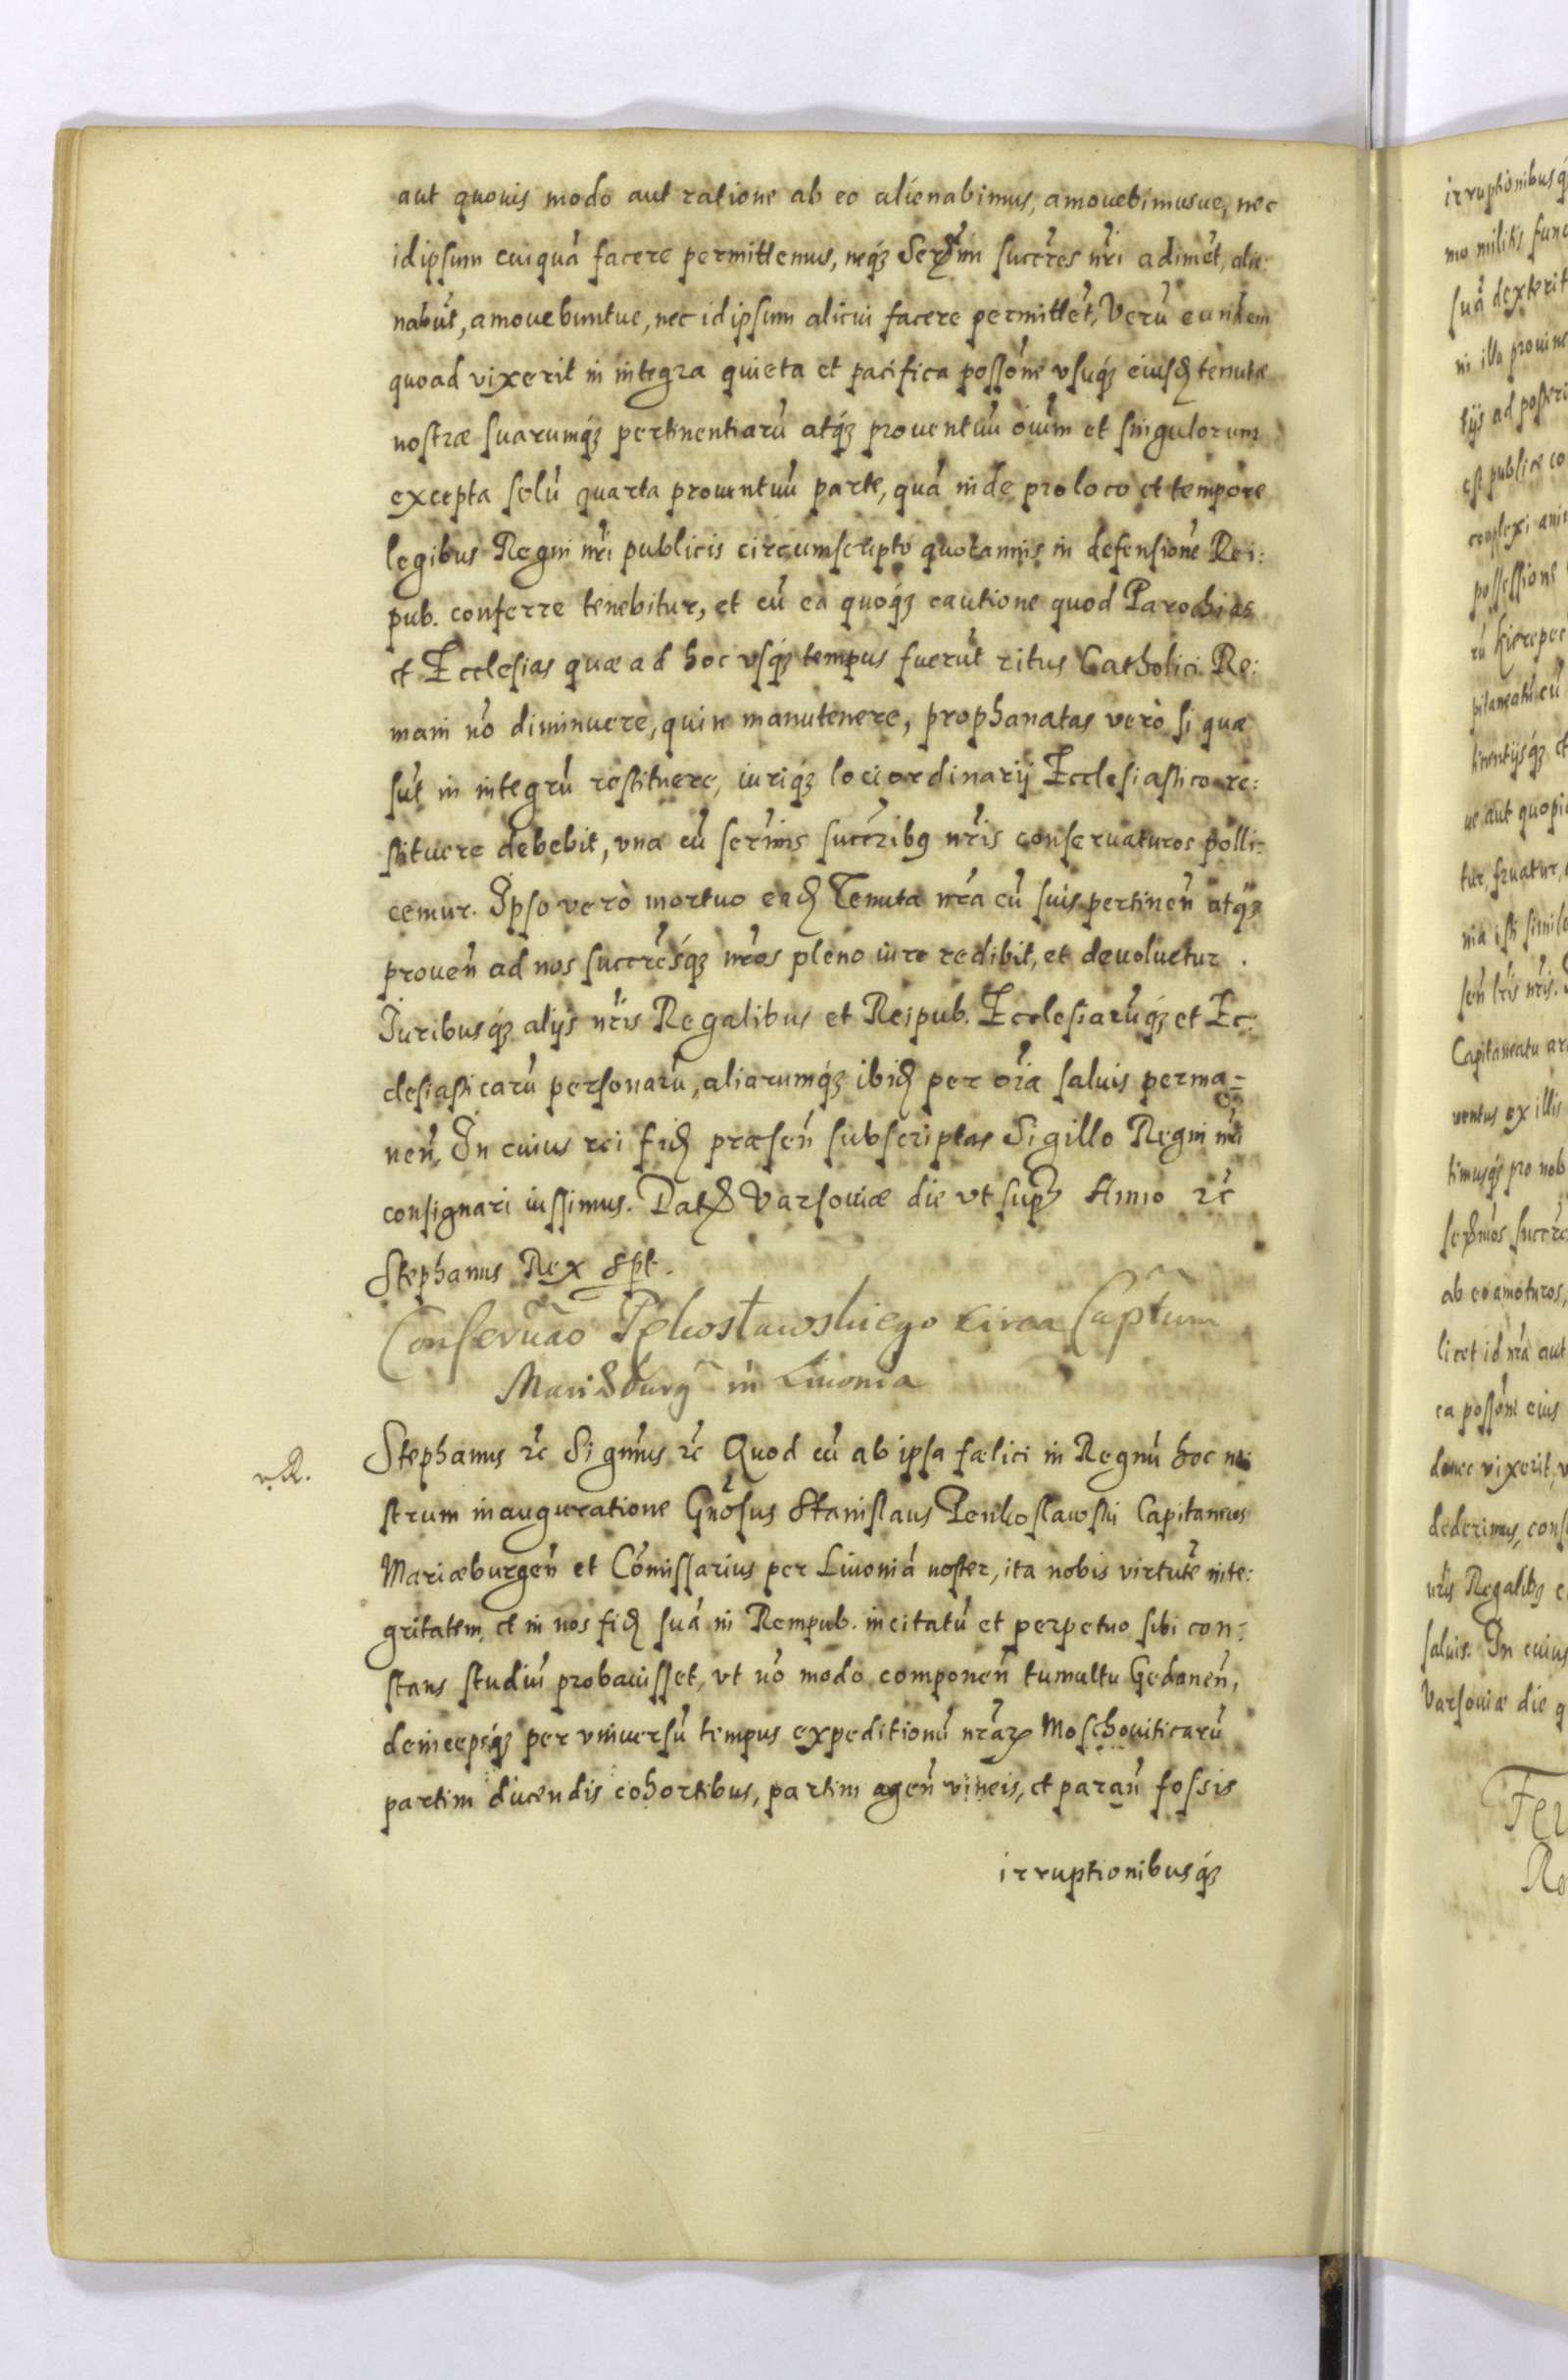 aut quouis modo aut ratione ab eo alienabimus, amouebimusue, nec
idipsum cuiquã facere permittemus, neq́ȝ Serx̃mi succ̃res nr̃i adimẽt, alie:
nabũt, amouebuntue, nec idipsum alicui facere permittẽt, Verũ eundem
quoad vixerit in integra quieta et pacifica possõne vsuq́ȝ eiusd̃ tenutæ
nostræ suarumq́ȝ pertinentiarũ atq́ȝ prouentuũ oĩum et singulorum
excepta solũ quarta prouentuũ parte, quã inde pro loco et tempore
legibus Regni nr̃i publicis circumscripto quotannis in defensionẽ Rei:
pub. conferre tenebitur, et cũ ea quoq́ȝ cautione quod Parochias
et Ecclesias quæ ad hoc vsq́ȝ tempus fuerũt ritus Catholici Ro:
mani nõ diminuere, quin manutenere, prophanatas verò si quæ
sũt in integrũ restituere, iuriq́ȝ loci ordinarij Ecclesiastico re:
stituere debebit, vna cũ serm̃is succr̃ibȝ nr̃is conseruaturos polli:
cemur. Ipso verò mortuo ead̃ Tenuta nr̃a cũ suis pertineñ atq́ȝ
proueñ ad nos succr̃esq́ȝ nr̃os pleno iure redibit, et deuoluetur.
Iuribusq́ȝ alijs nr̃is Regalibus et Reipub. Ecclesiarũq́ȝ et Ec:
clesiasticarũ personarũ, aliarumq́ȝ ibid̃ per oĩa saluis perma=
neñ. In cuius rei fid̃ præseñ subscriptas Sigillo Regni nr̃i
consignari iussimus. Dat̃ Varsouiæ die vt sup̃ Anno ꝛc̃
Stephanus Rex sp̃t.
Conseruão Pękosławskiego circa Capt̃um
Mariæburg̃ in Liuonia
r. R.
Stephanus ꝛc̃ Significamus ꝛc̃ Quod cũ ab ipsa fælici in Regnũ hoc no
strum inauguratione Gñosus Stanislaus Penkoslawski Capitaneus
Mariæburgeñ et Cõmissarius per Liuoniã noster, ita nobis virtutẽ inte:
gritatem, et in nos fid̃ suã in Rempub. incitatũ et perpetuo sibi con:
stans studiũ probauisset, vt nõ modo componeñ tumultu Gedaneñ,
deincepsq́ȝ per vniuersũ tempus expeditionũ nr̃aꝝ Moschouiticarũ
partim ducendis cohortibus, partim ageñ vineis, et parañ fossis
irruptionibusq́ȝ
irruptionibusq́
mo militis
suã dexterit
in illa prouinc
tijs ad posteri
est publice co
complexi
possessione
pitaneatũ cũ
ue aut quopi
tur, fruatur,
señ lr̃is nr̃is.
Capitaneatu
uentus ex illis
timusq́ȝ pro nob
ab eo amoturos,
licet id nr̃a aut
ea possõne eius
donec vixerit,
dederimus, cons
nr̃is Regalibȝ
saluis. In cuius
Varsouiæ die